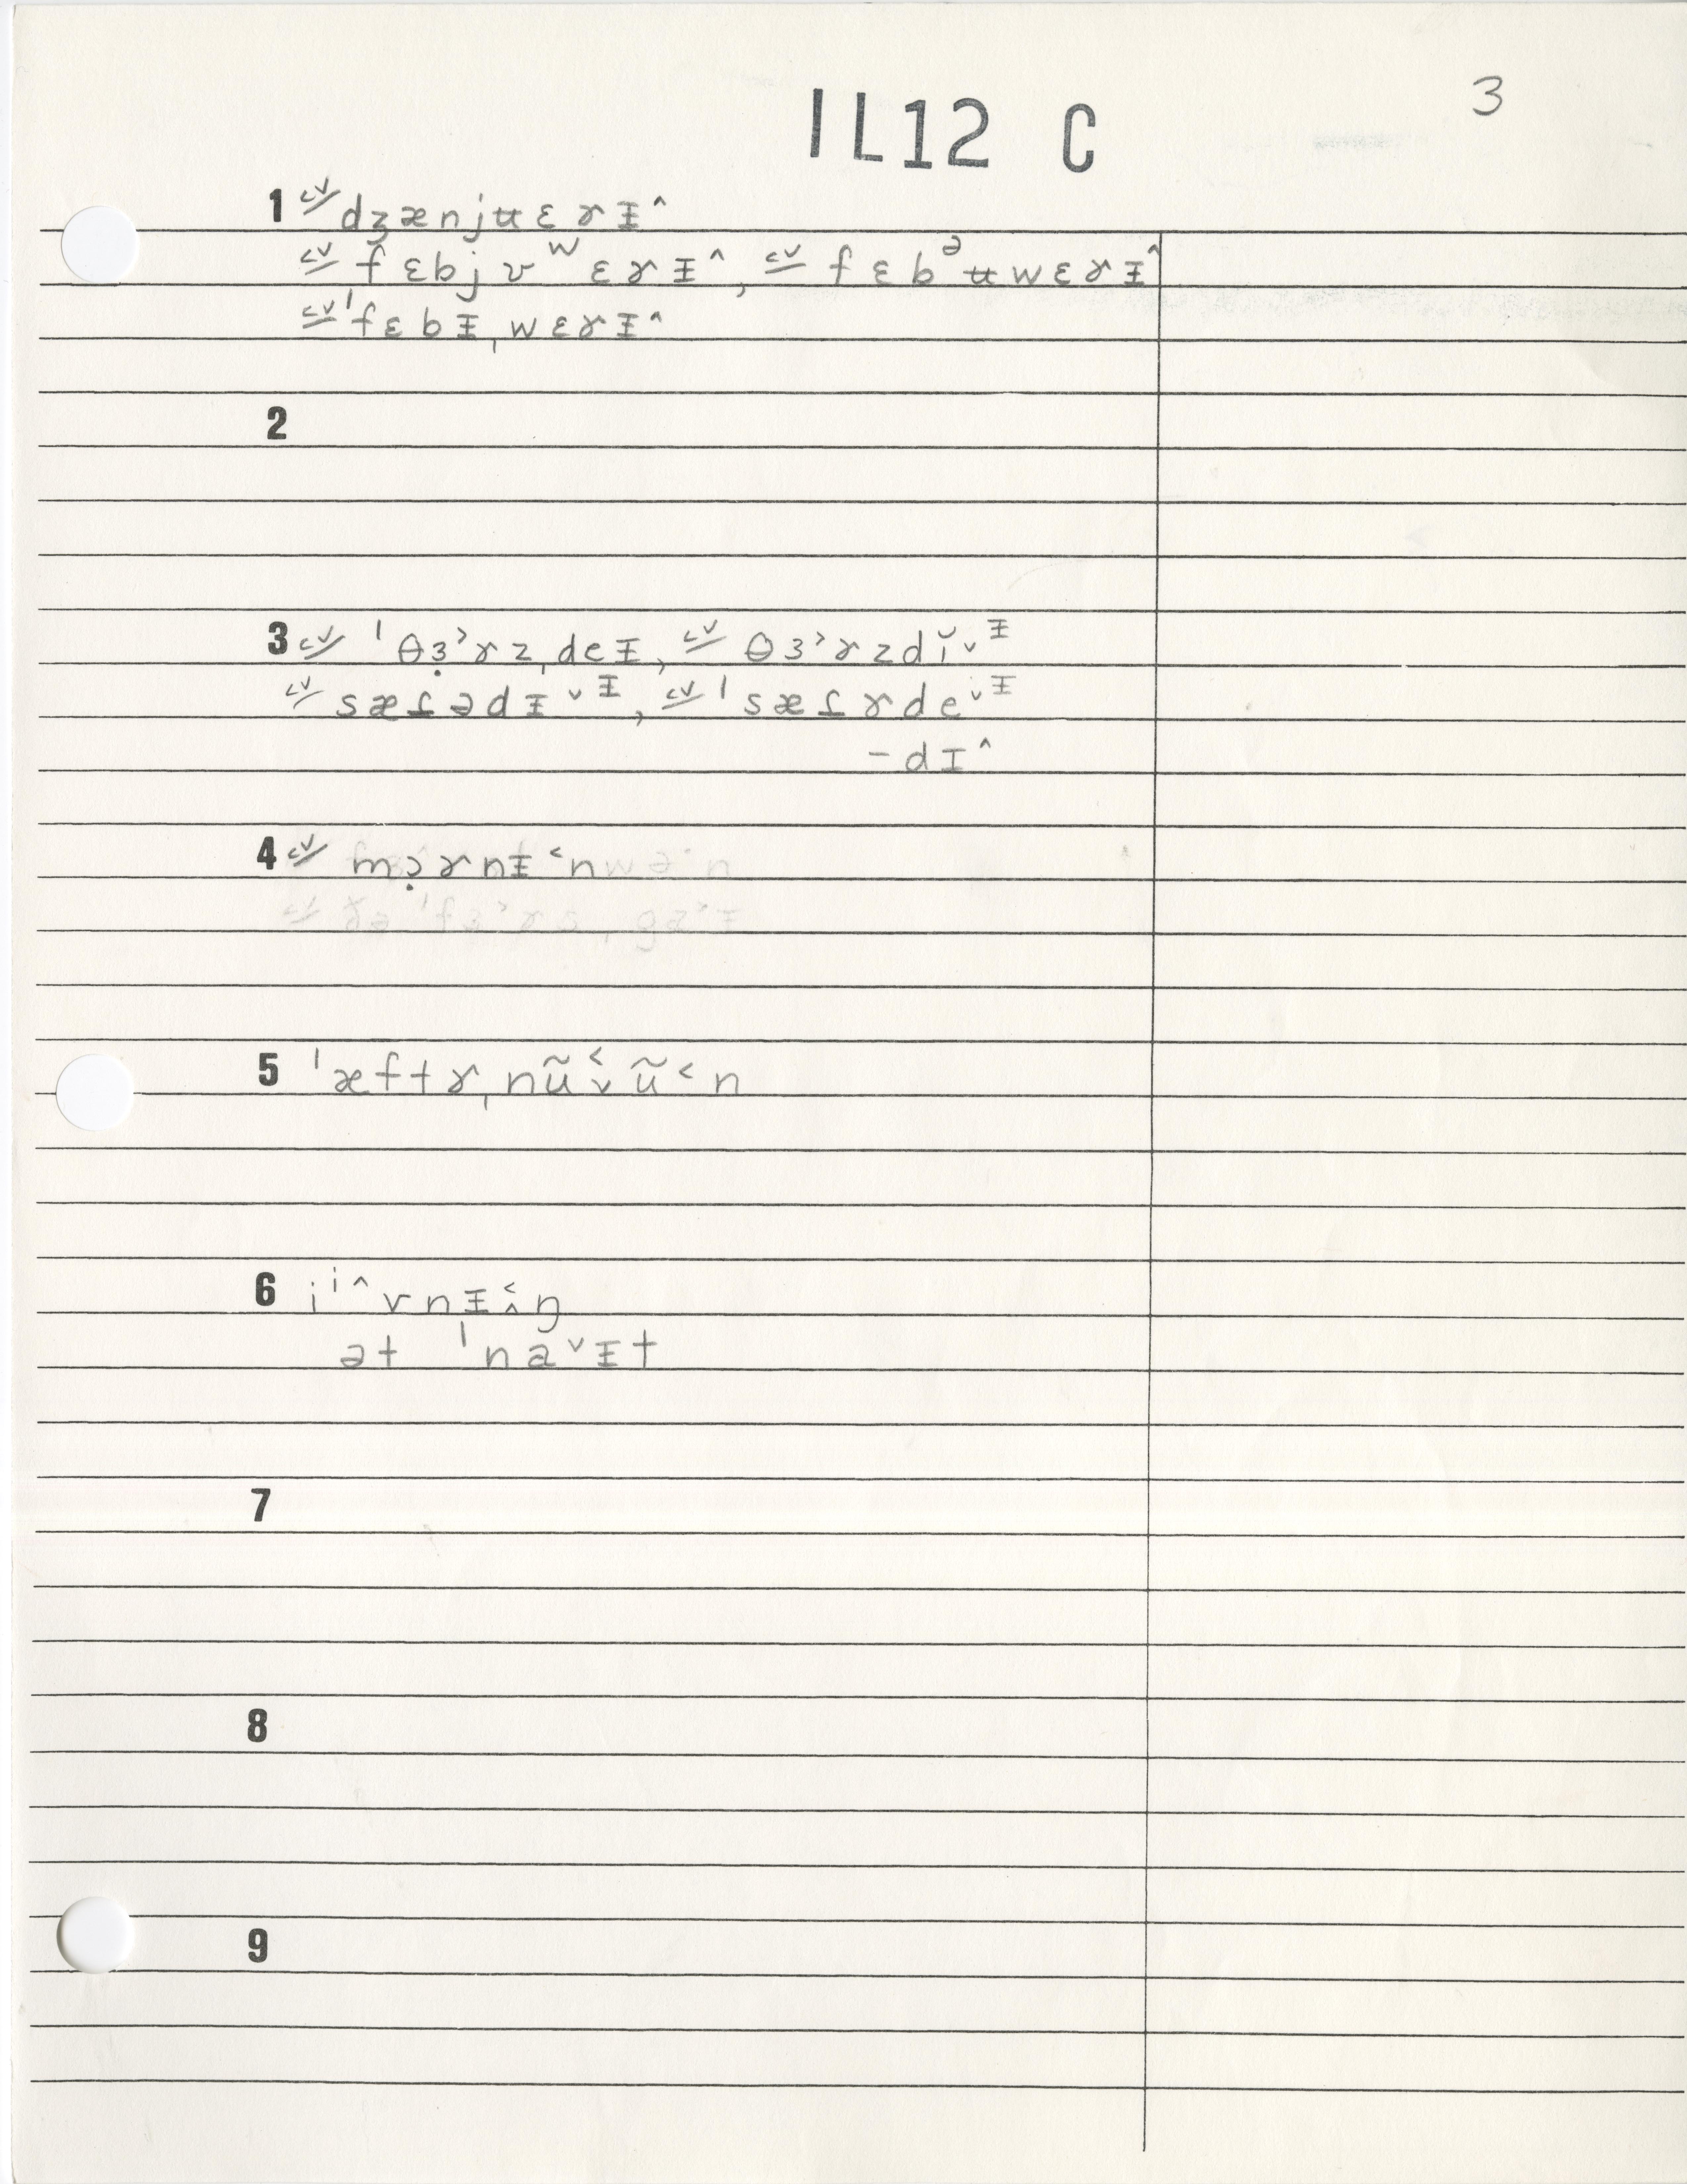 3
IL12 C
1 cv dʒænjʉɛɤɪ̵^
cv fɛbjʋʷɛɤɪ̵^, cv fɛbᵊʉwɛɤɪ̵^
cv ˈfɛbɪ̵ˌwɛɤɪ̵^
2
3 cv ˈθɜ̣˃ɤzˌdeɪ̵, cv θɜ˃ɤzdi˅ᶧ
cv sætədɪ̵˅ᶧ, cv ˈsætɤde˅ᶧ
- dɪ^
4 cv mɔ̣ɤnɪ̵˂n
5 ˈæftɤˌnũ˂˅ũ˂n
6 iⁱ^vnɪ̵˂^ŋ
ət ˈna˅ɪ̵t
7
8
9